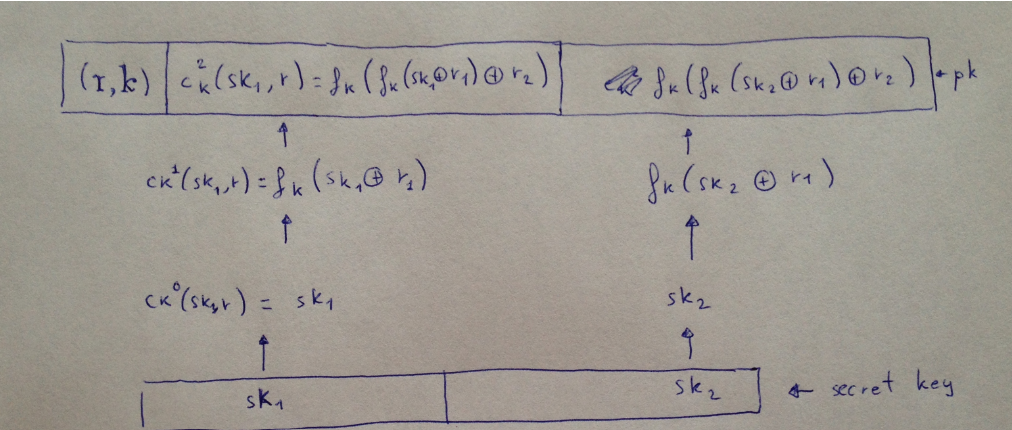 (r,k) c_k^2(sk_1,r) = f_k(f_k(sk_1⊕r_1)⊕r_2) f_k(f_k(sk_2⊕r_1)⊕r_2) ← pk
c_k^1(sk_1,r) = f_k(sk_1⊕r_1) f_k(sk_2⊕r_1)
c_k^0(sk_1,r) = sk_1 sk_2
sk_1 sk_2 ← secret key